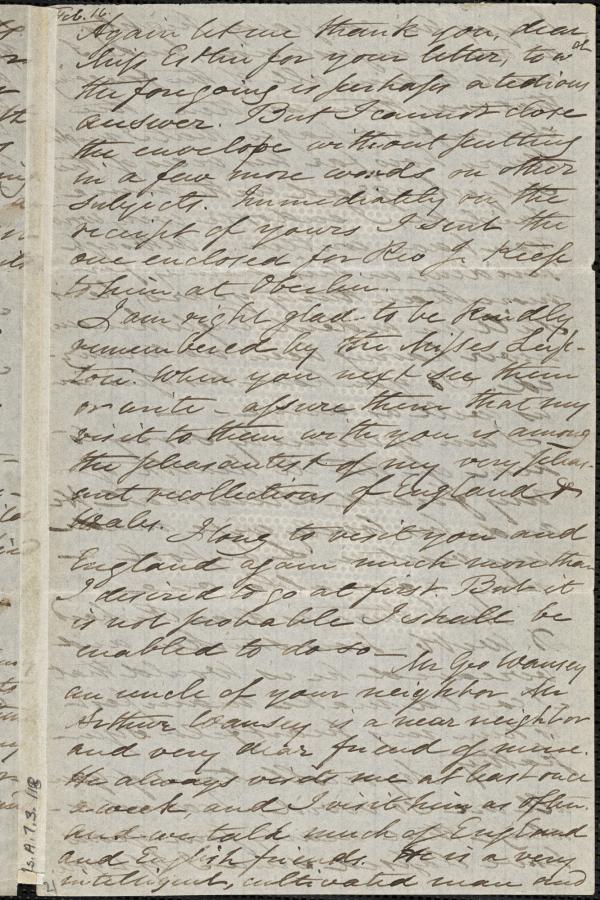 Feb. 16.
Again let me thank you, dear
Miss Estlin for your letter, to wh
the foregoing is perhaps a tedious
answer. But I cannot close
the envelope without putting
in a few more words on other
subjects. Immediately on the
receipt of yours I sent the
one enclosed for Rev J. Keep
to him at Oberlin.
I am right glad to be kindly
remembered by the Misses Lup-
ton. When you next see them
or write - assure them that my
visit to them with you is among
the pleasantest of my very pleas-
ant recollections of England &
Wales.
I long to visit you and
England again much more than
I desired to go at first. But it
is not probable I shall be
enabled to do so —
Mr Geo Wansey
an uncle of your neighbor Mr
Arthur Wansey is a near neighbor
and very dear friend of mine.
He always visits me at least once
a week, and I visit him as often.
and we talk much of England
and English friends. He is a very
intelligent, cultivated man and
Ms.A.7.3.118
2